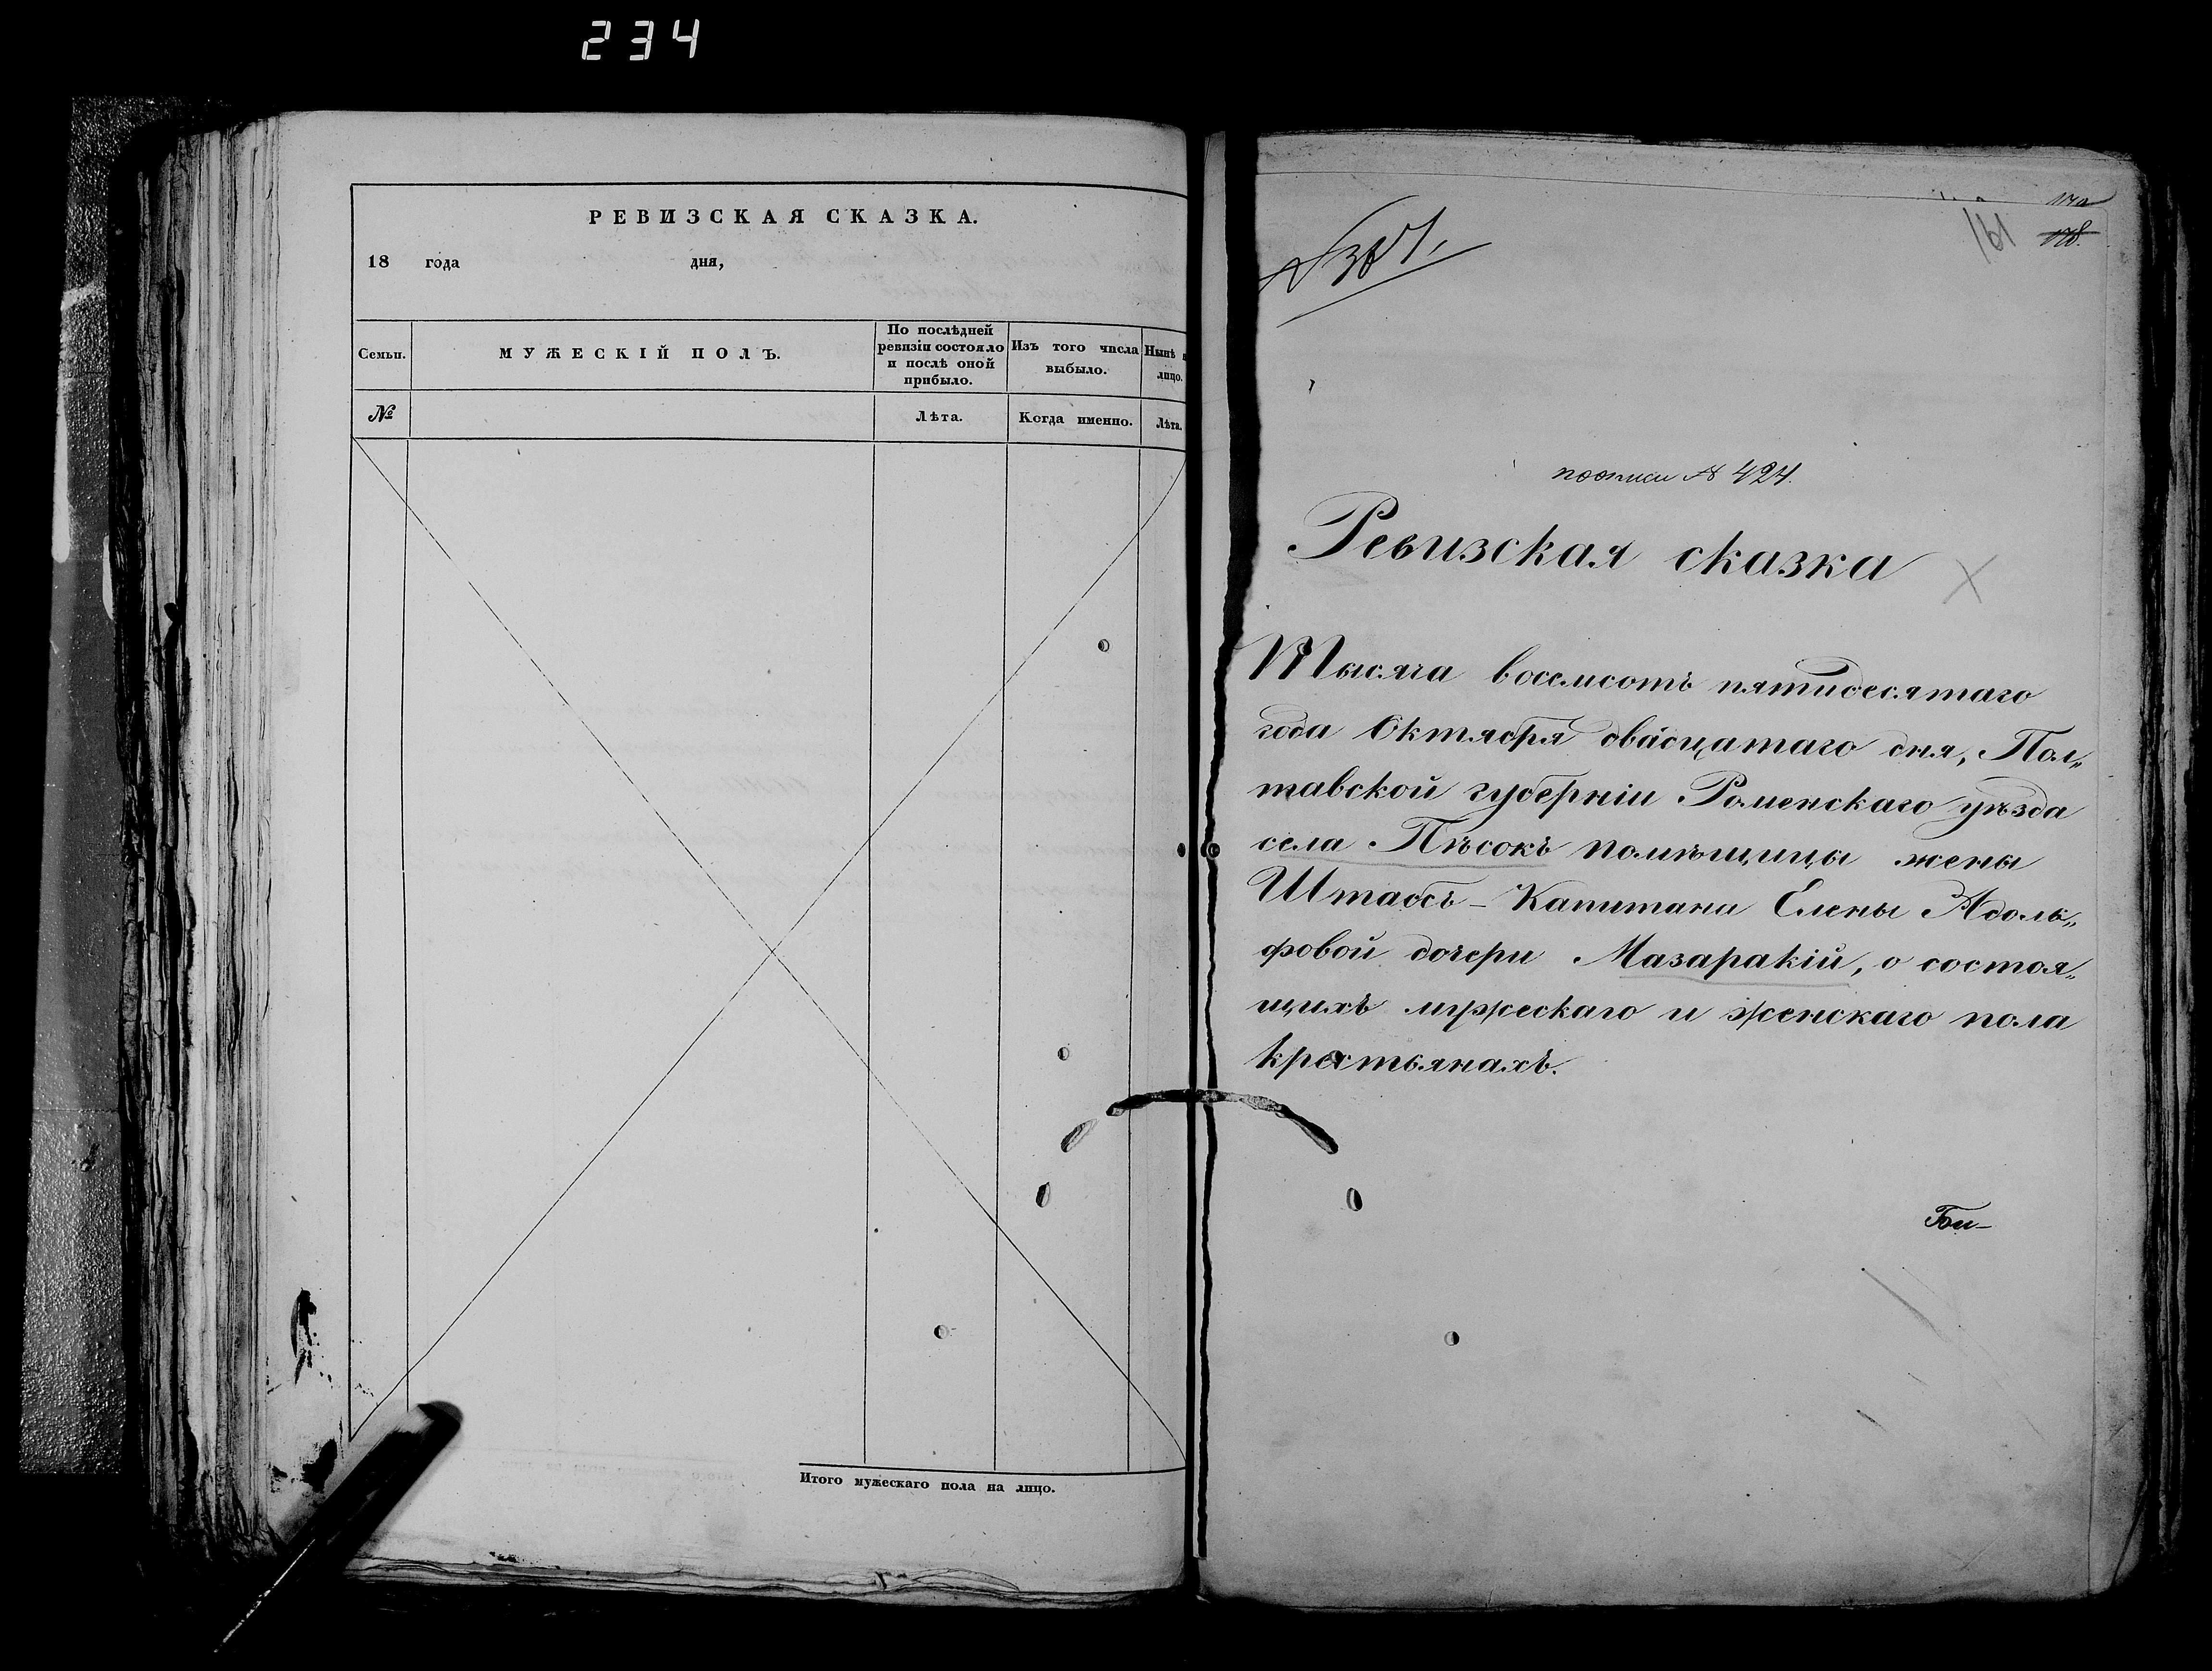 234
РЕВИЗСКАЯ СКАЗКА.
18 года дня,
Семьи.
МУЖЕСКІЙ ПОЛЪ.
По послѣдней ревизіи состояло и послѣ оной прибыло.
Изъ того числа выбыло.
Нынѣ лицо.
№
Лѣта.
Когда именно.
Лѣта.
Итого мужескаго пола на лицо.
161
178.
поописи № 424.
Ревизская сказка
Тысяча восемсотъ пятидесятаго
года Октября двадцатаго дня, Пол„
тавской губерніи Роменскаго уѣзда
села Пѣсокъ помѣщицы жены
Штабсъ-Капитана Елены Адоль„
фовой дочери Мазаракій, о состоя„
щихъ мужескаго и женскаго пола
крестьянахъ.